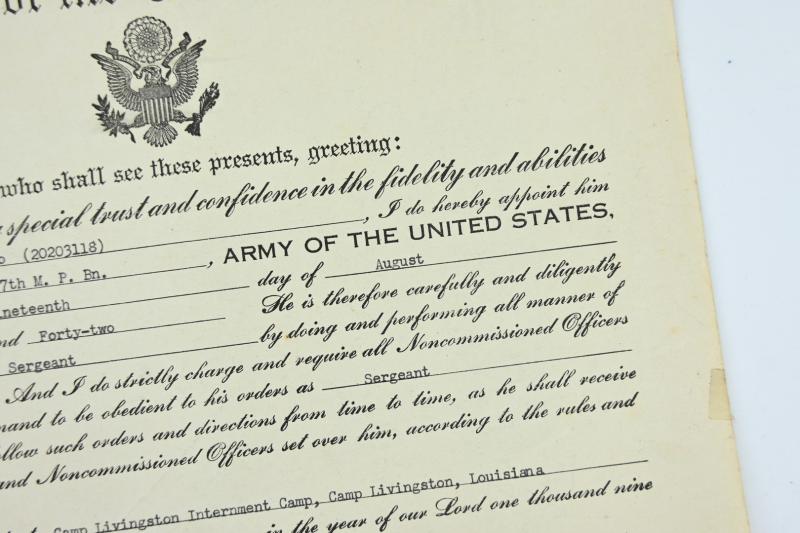 who shall see these presents, greeting:
special trust and confidence in the fidelity and abilities
(20203118) , I do hereby appoint him
7th M. P. Bn. , ARMY OF THE UNITED STATES,
day of August
He is therefore carefully and diligently
Forty-two by doing and performing all manner of
Sergeant
And I do strictly charge and require all Noncommissioned Officers
to be obedient to his orders as Sergeant
such orders and directions from time to time, as he shall receive
and Noncommissioned Officers set over him, according to the rules and
Camp Livingston Internment Camp, Camp Livingston, Louisiana
in the year of our Lord one thousand nine